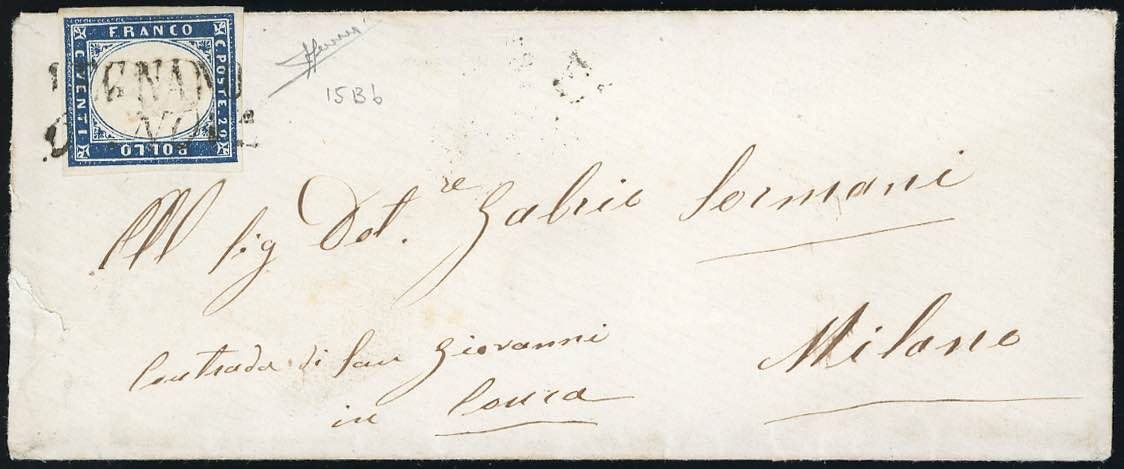 FRANCO
C. POSTE. 20
BOLLO
C. VENTI
GNANO
15Bb
All sig Dot.re Gabrio Sormani
Contrada di San Giovanni
in Conca
Milano